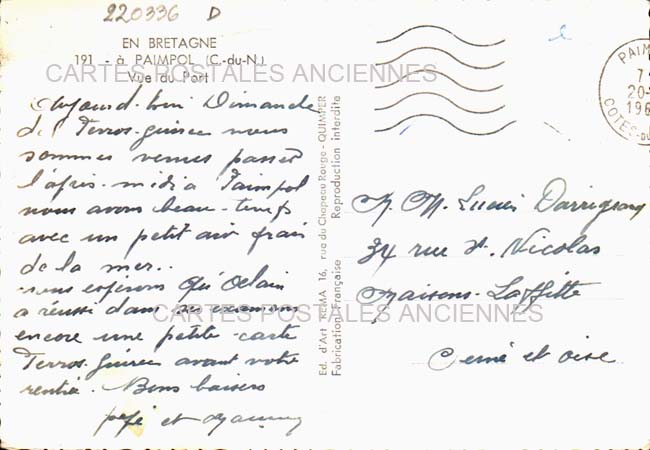 220336 D
EN BRETAGNE
191 - à PAIMPOL (C.-du-N.)
Vue du Port
CARTES POSTALES ANCIENNES
Aujourd'hui Dimanche
de Perros-Guirec nous
sommes venus passer
l'après-midi à Paimpol
nous avons beau-temps
avec un petit air frais
de la mer..
nous espérons que Alain
a réussi dans ses examens
encore une petite carte
Perros-Guirec avant votre
rentrée. Bons baisers
pépé et
Ed. d'Art REMA 16, rue du Chapeau Rouge - QUIMPER
Fabrication Française Reproduction interdite
PAIM
7
20-
196
COTES-DU
M. M. Lucien Darrigrand
34 rue St. Nicolas
Maisons-Laffitte
CARTES POSTALES ANCIENNES
Seine et oise